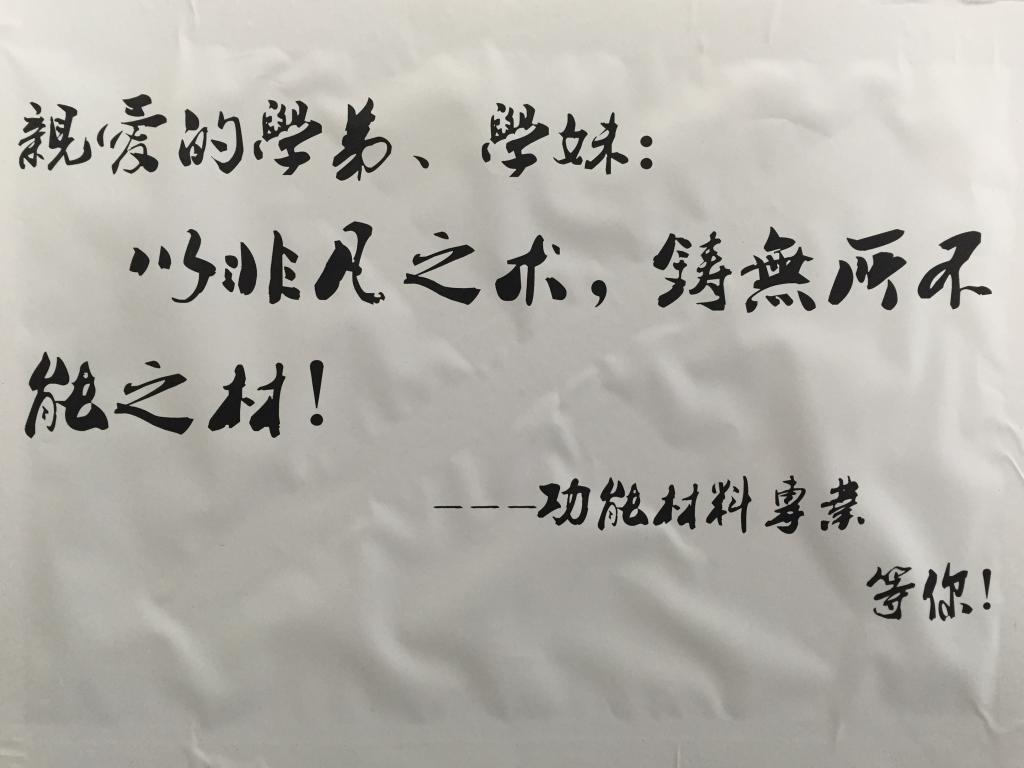 親愛的學弟、學妹:
以非凡之术,鑄無所不
能之材!
---功能材料專業
等你!